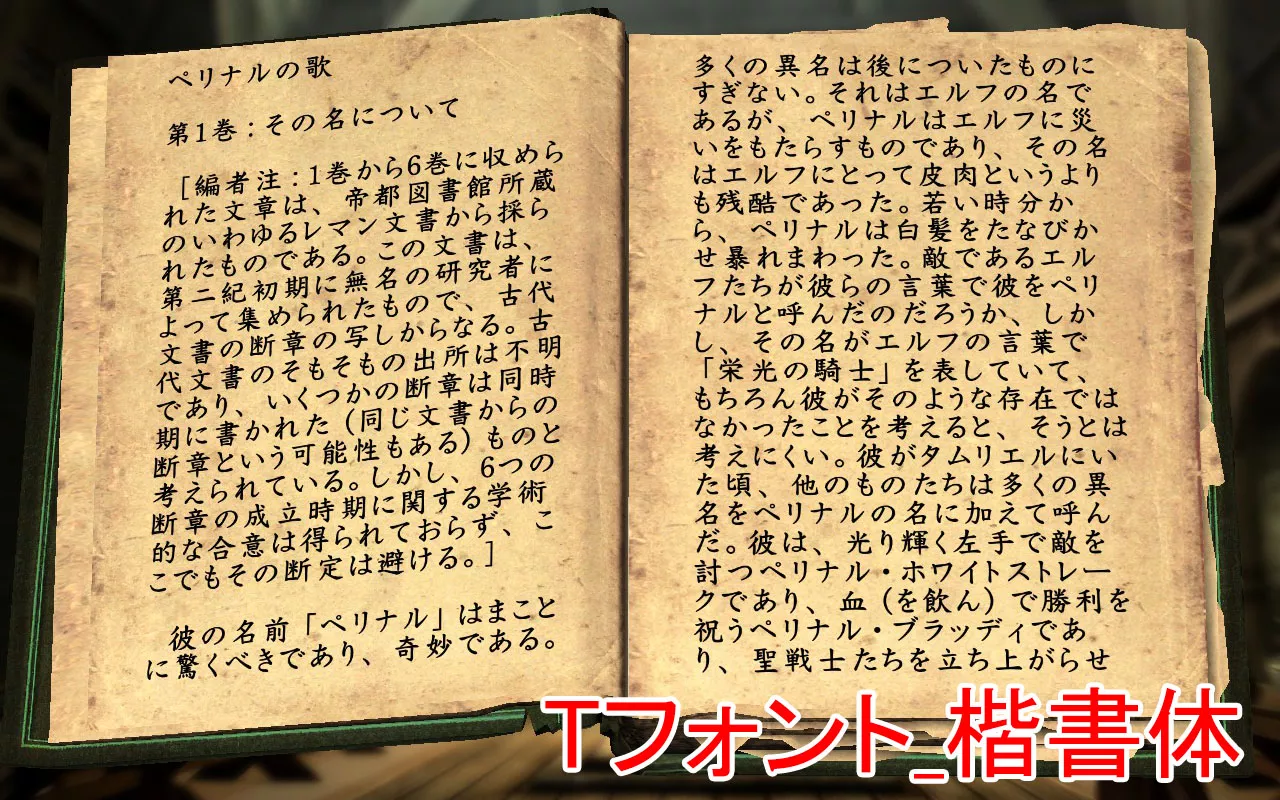 ペリナルの歌
第1巻：その名について
［編者注：1巻から6巻に収めら
れた文章は、帝都図書館所蔵
のいわゆるレマン文書から採ら
れたものである。この文書は、
第二紀初期に無名の研究者に
よって集められたもので、古代
文書の断章の写しからなる。古
代文書のそもそもの出所は不明
であり、いくつかの断章は同時
期に書かれた（同じ文書からの
断章という可能性もある）ものと
考えられている。しかし、6つの
断章の成立時期に関する学術
的な合意は得られておらず、こ
こでもその断定は避ける。］
彼の名前「ペリナル」はまこと
に驚くべきであり、奇妙である。
多くの異名は後についたものに
すぎない。それはエルフの名で
あるが、ペリナルはエルフに災
いをもたらすものであり、その名
はエルフにとって皮肉というより
も残酷であった。若い時分か
ら、ペリナルは白髪をたなびか
せ暴れまわった。敵であるエル
フたちが彼らの言葉で彼をペリ
ナルと呼んだのだろうか、しか
し、その名がエルフの言葉で
「栄光の騎士」を表していて、
もちろん彼がそのような存在では
なかったことを考えると、そうとは
考えにくい。彼がタムリエルにい
た頃、他のものたちは多くの異
名をペリナルの名に加えて呼ん
だ。彼は、光り輝く左手で敵を
討つペリナル・ホワイトストレー
クであり、血（を飲ん）で勝利を
祝うペリナル・ブラッディであ
り、聖戦士たちを立ち上がらせ
Tフォント_楷書体